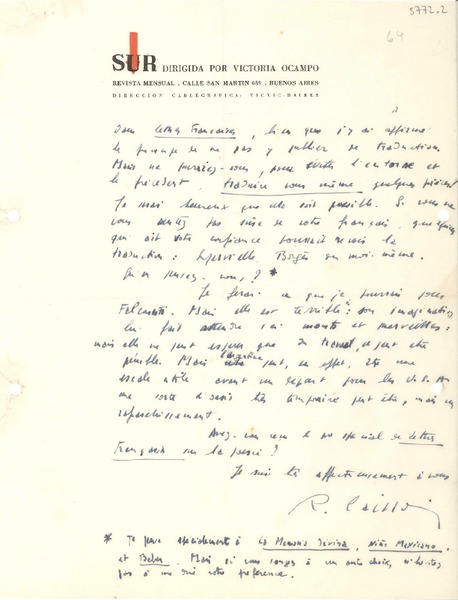 5772.2
64
SUR DIRIGIDA POR VICTORIA OCAMPO
REVISTA MENSUAL . CALLE SAN MARTIN 689 . BUENOS AIRES
DIRECCION CABLEGRAFICA: VICVIC-BAIRES
Dans Lettres Françaises, bien que j'y ai affirmé
le principe de ne pas y publier de traduction.
Mais ne pourriez-vous, pour éviter l'entorse et
le précédent, traduire vous même quelques
Je serai heureux que cela soit possible. Si vous ne
vous sentez pas sûre de votre français, quelqu'un
qui ait votre confiance pourrait revoir la
traduction : Supervielle, Borgès ou moi-même.
Qu'en pensez-vous ? *
Je ferai ce que je pourrai pour
Mais elle est terrible : son imagination
lui fait attendre monts et merveilles :
mais elle ne peut espérer que du travail, et peut être
pénible. Mais l'Argentine peut, en effet, être une
escale utile avant un départ pour les U.S.A.
une sorte d' très temporaire peut être, mais un
rafraîchissement.
Avez-vous reçu le no spécial de Lettres
Françaises sur la poésie ?
Je suis très affectueusement à vous
R. Caillois
* Je pense spécialement à La Memoria Divina, Niño Mexicano,
et Mais si vous songez à un autre choix, n'hésitez
pas à me dire votre préférence.